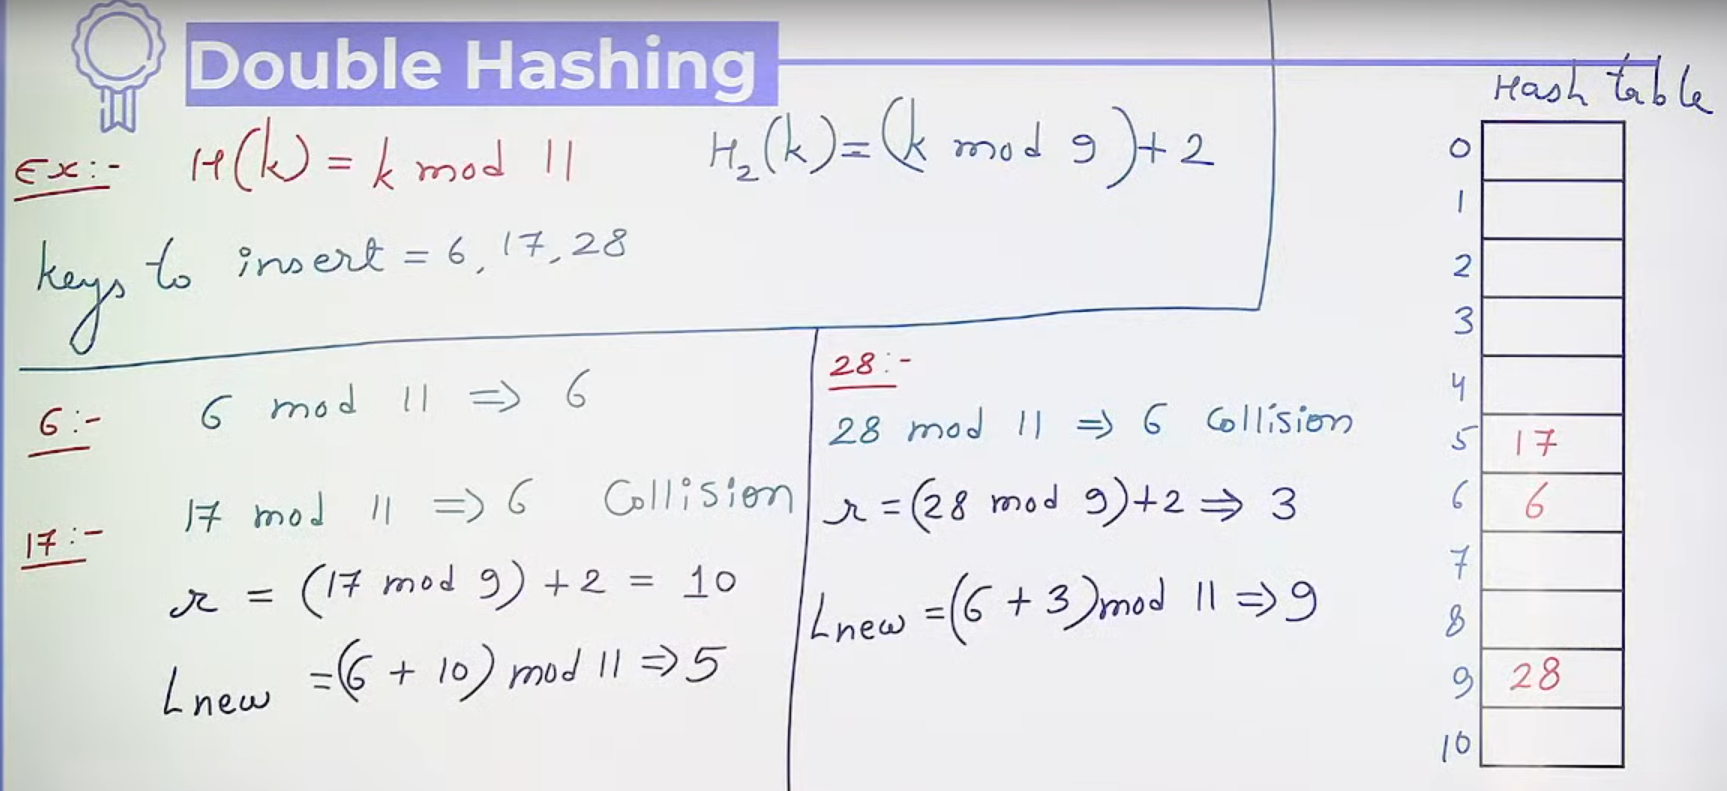 Double Hashing
Ex:- H(k) = k mod 11
H₂(k) = (k mod 9) + 2
keys to insert = 6, 17, 28
6:- 6 mod 11 ⇒ 6
17:- 17 mod 11 ⇒ 6 Collision
r = (17 mod 9) + 2 = 10
Lnew = (6 + 10) mod 11 ⇒ 5
28:-
28 mod 11 ⇒ 6 Collision
r = (28 mod 9) + 2 ⇒ 3
Lnew = (6 + 3) mod 11 ⇒ 9
Hash table
0
1
2
3
4
5 17
6 6
7
8
9 28
10